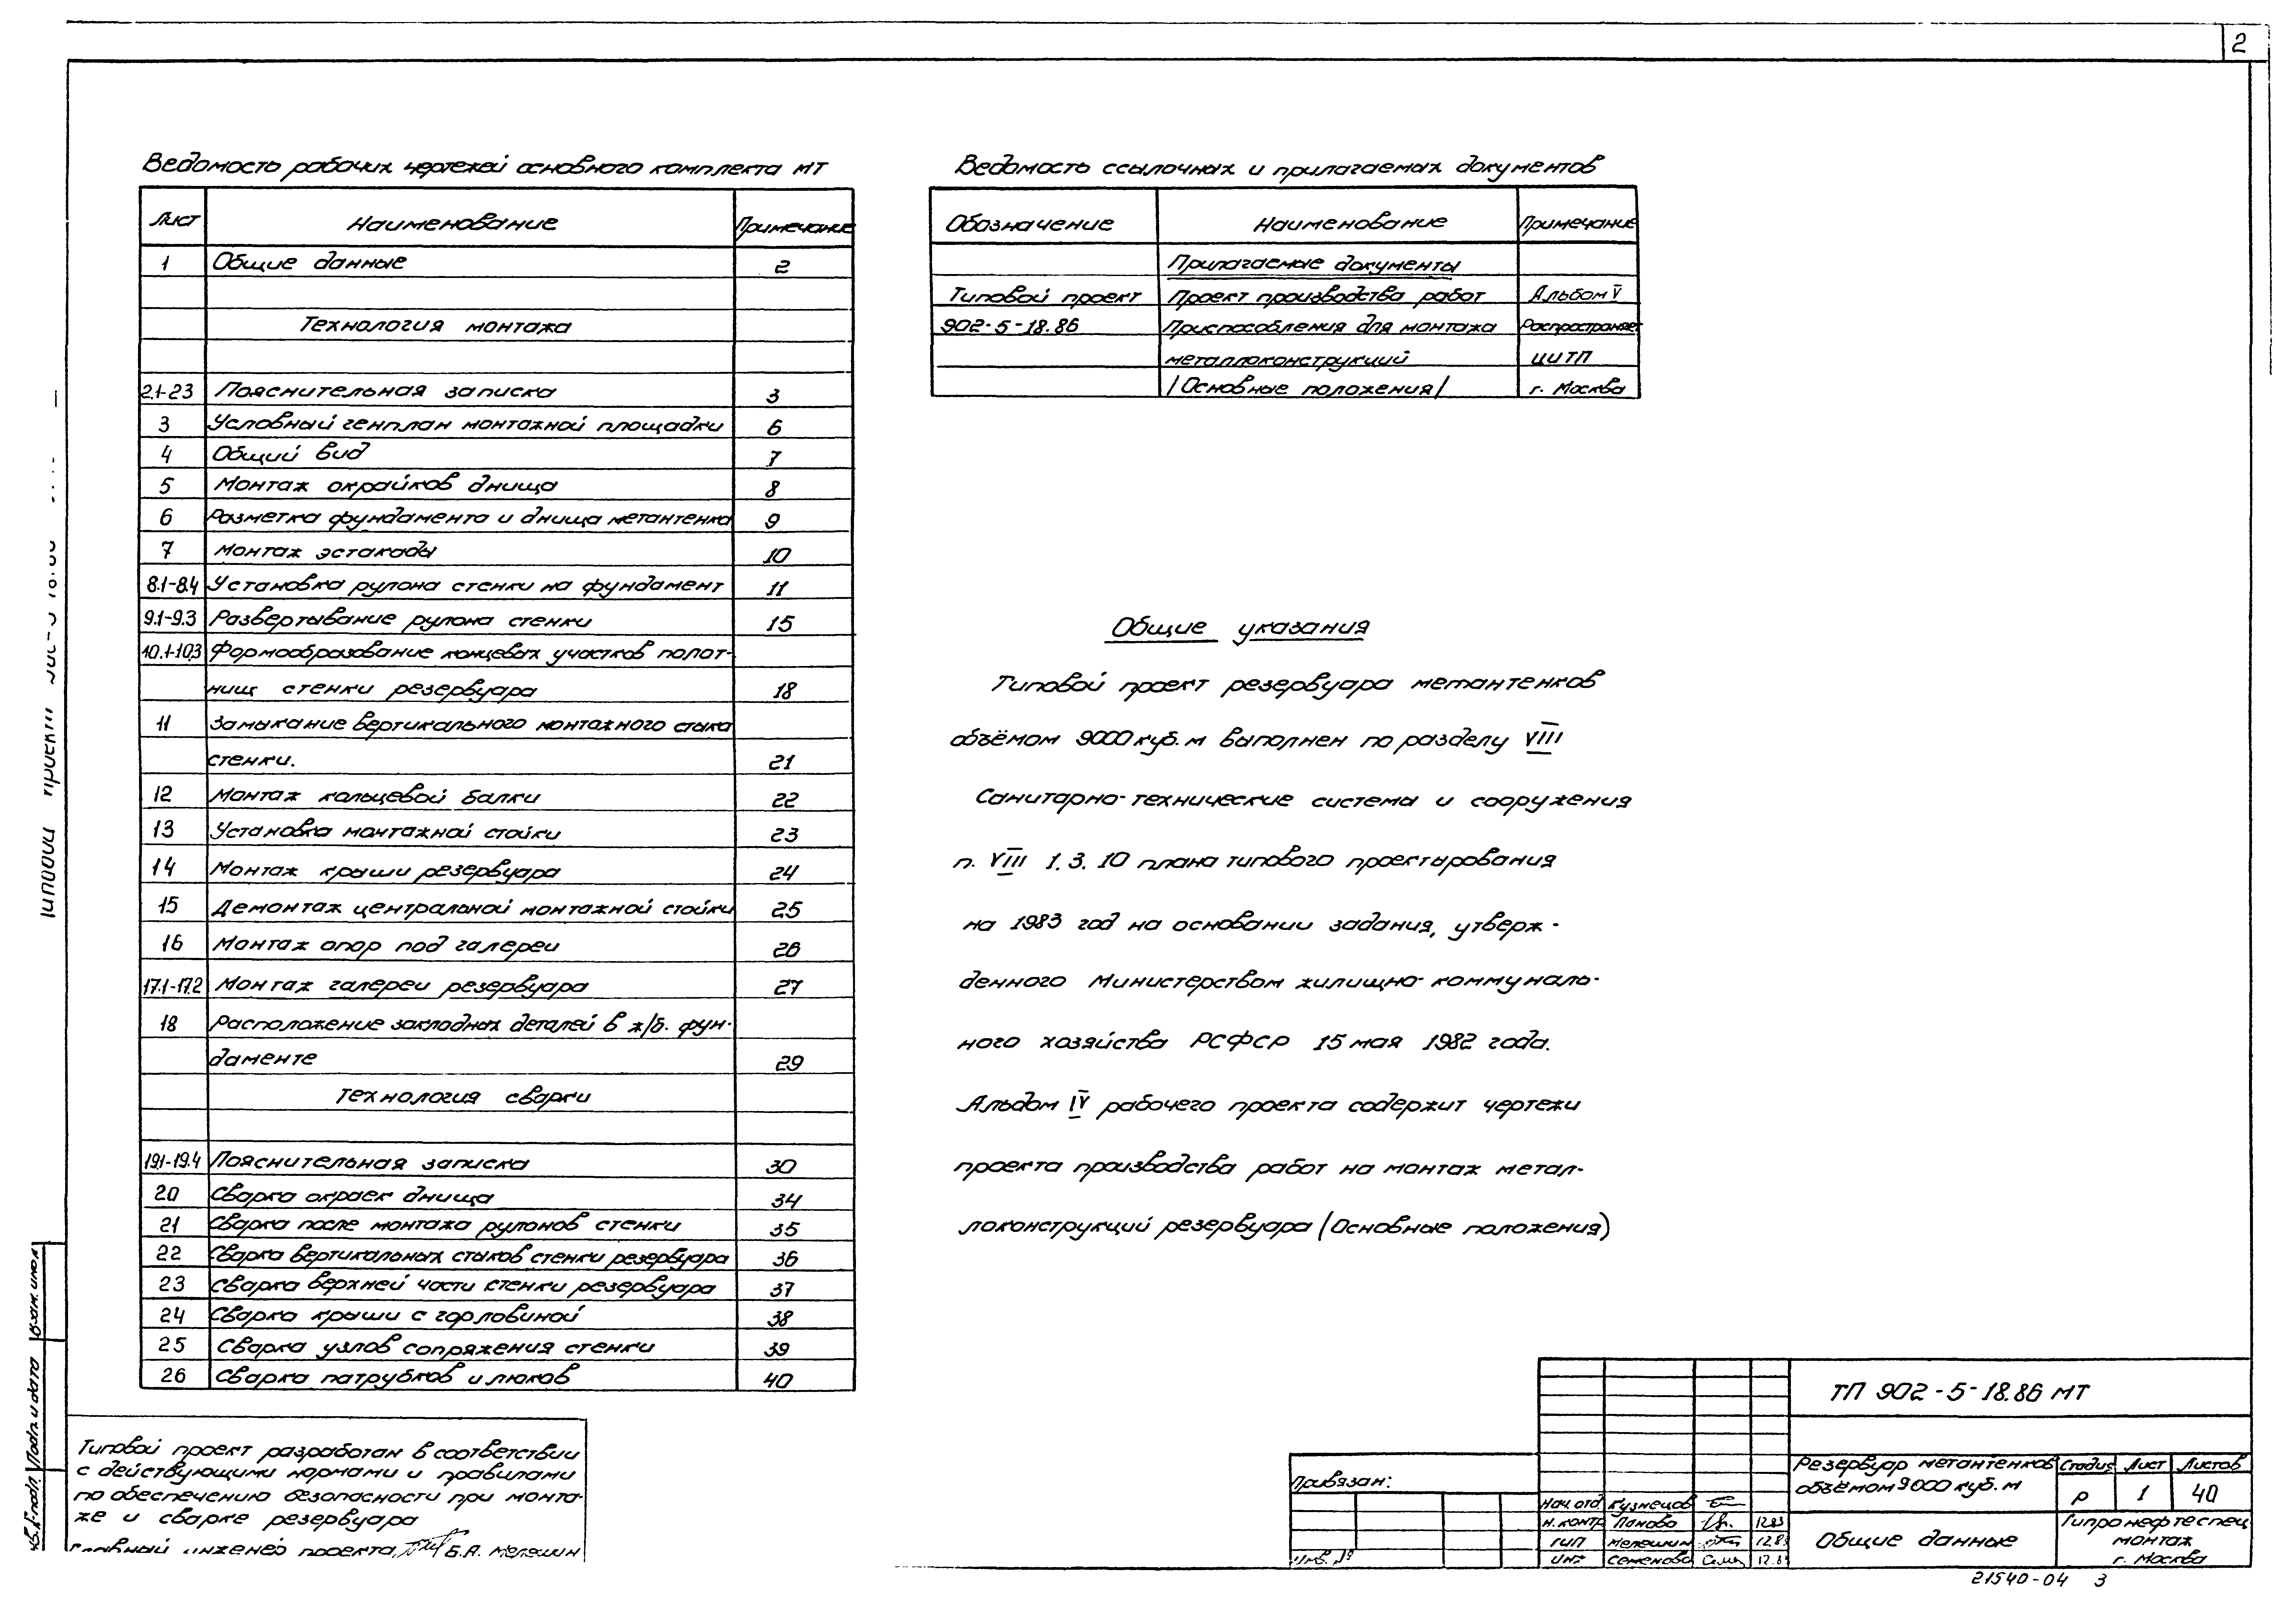 2
Ведомость рабочих чертежей основного комплекта МТ
Лист Наименование Примечание
1 Общие данные 2
Технология монтажа
2.1-2.3 Пояснительная записка 3
3 Условный генплан монтажной площадки 6
4 Общий вид 7
5 Монтаж окрайков днища 8
6 Разметка фундамента и днища метантенка 9
7 Монтаж эстакады 10
8.1-8.4 Установка рулона стенки на фундамент 11
9.1-9.3 Развертывание рулона стенки 15
10.1-10.3 Формообразование концевых участков полот-
нищ стенки резервуара 18
11 Замыкание вертикального монтажного стыка
стенки. 21
12 Монтаж кольцевой балки 22
13 Установка монтажной стойки 23
14 Монтаж крыши резервуара 24
15 Демонтаж центральной монтажной стойки 25
16 Монтаж опор под галереи 26
17.1-17.2 Монтаж галереи резервуара 27
18 Расположение закладных деталей в ж/б. фун-
даменте 29
Технология сварки
19.1-19.4 Пояснительная записка 30
20 Сварка окраек днища 34
21 Сварка после монтажа рулонов стенки 35
22 Сварка вертикальных стыков стенки резервуара 36
23 Сварка верхней части стенки резервуара 37
24 Сварка крыши с горловиной 38
25 Сварка узлов сопряжения стенки 39
26 Сварка патрубков и люков 40
Ведомость ссылочных и прилагаемых документов
Обозначение Наименование Примечание
Прилагаемые документы
Типовой проект Проект производства работ Альбом V
902-5-18.86 Приспособления для монтажа Распространяет
металлоконструкций ЦИТП
/Основные положения/ г. Москва
Общие указания
Типовой проект резервуара метантенков
объёмом 9000 куб. м выполнен по разделу VIII
Санитарно-технические система и сооружения
п. VIII 1.3.10 плана типового проектирования
на 1983 год на основании задания, утверж-
денного Министерством жилищно-коммуналь-
ного хозяйства РСФСР 15 мая 1982 года.
Альбом IV рабочего проекта содержит чертежи
проекта производства работ на монтаж метал-
локонструкций резервуара (Основные положения)
Типовой проект разработан в соответствии
с действующими нормами и правилами
по обеспечению безопасности при монта-
же и сварке резервуара
Главный инженер проекта Б.А. Мелешин
Типовой проект
Взам. инв.
Подп. и дата
Привязан:
Инв. №
ТП 902-5-18.86 МТ
Резервуар метантенков
объёмом 9000 куб. м
Стадия Лист Листов
Р 1 40
Нач. отд Кузнецов
Н. контр Панова 12.83
ГИП Мелешин 12.83
Инж Семенова 12.83
Общие данные
Гипронефтеспец
монтаж
г. Москва
21540-04 3